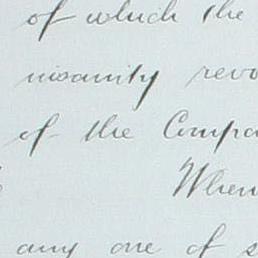 of which the
insanity
of the
When
any one of